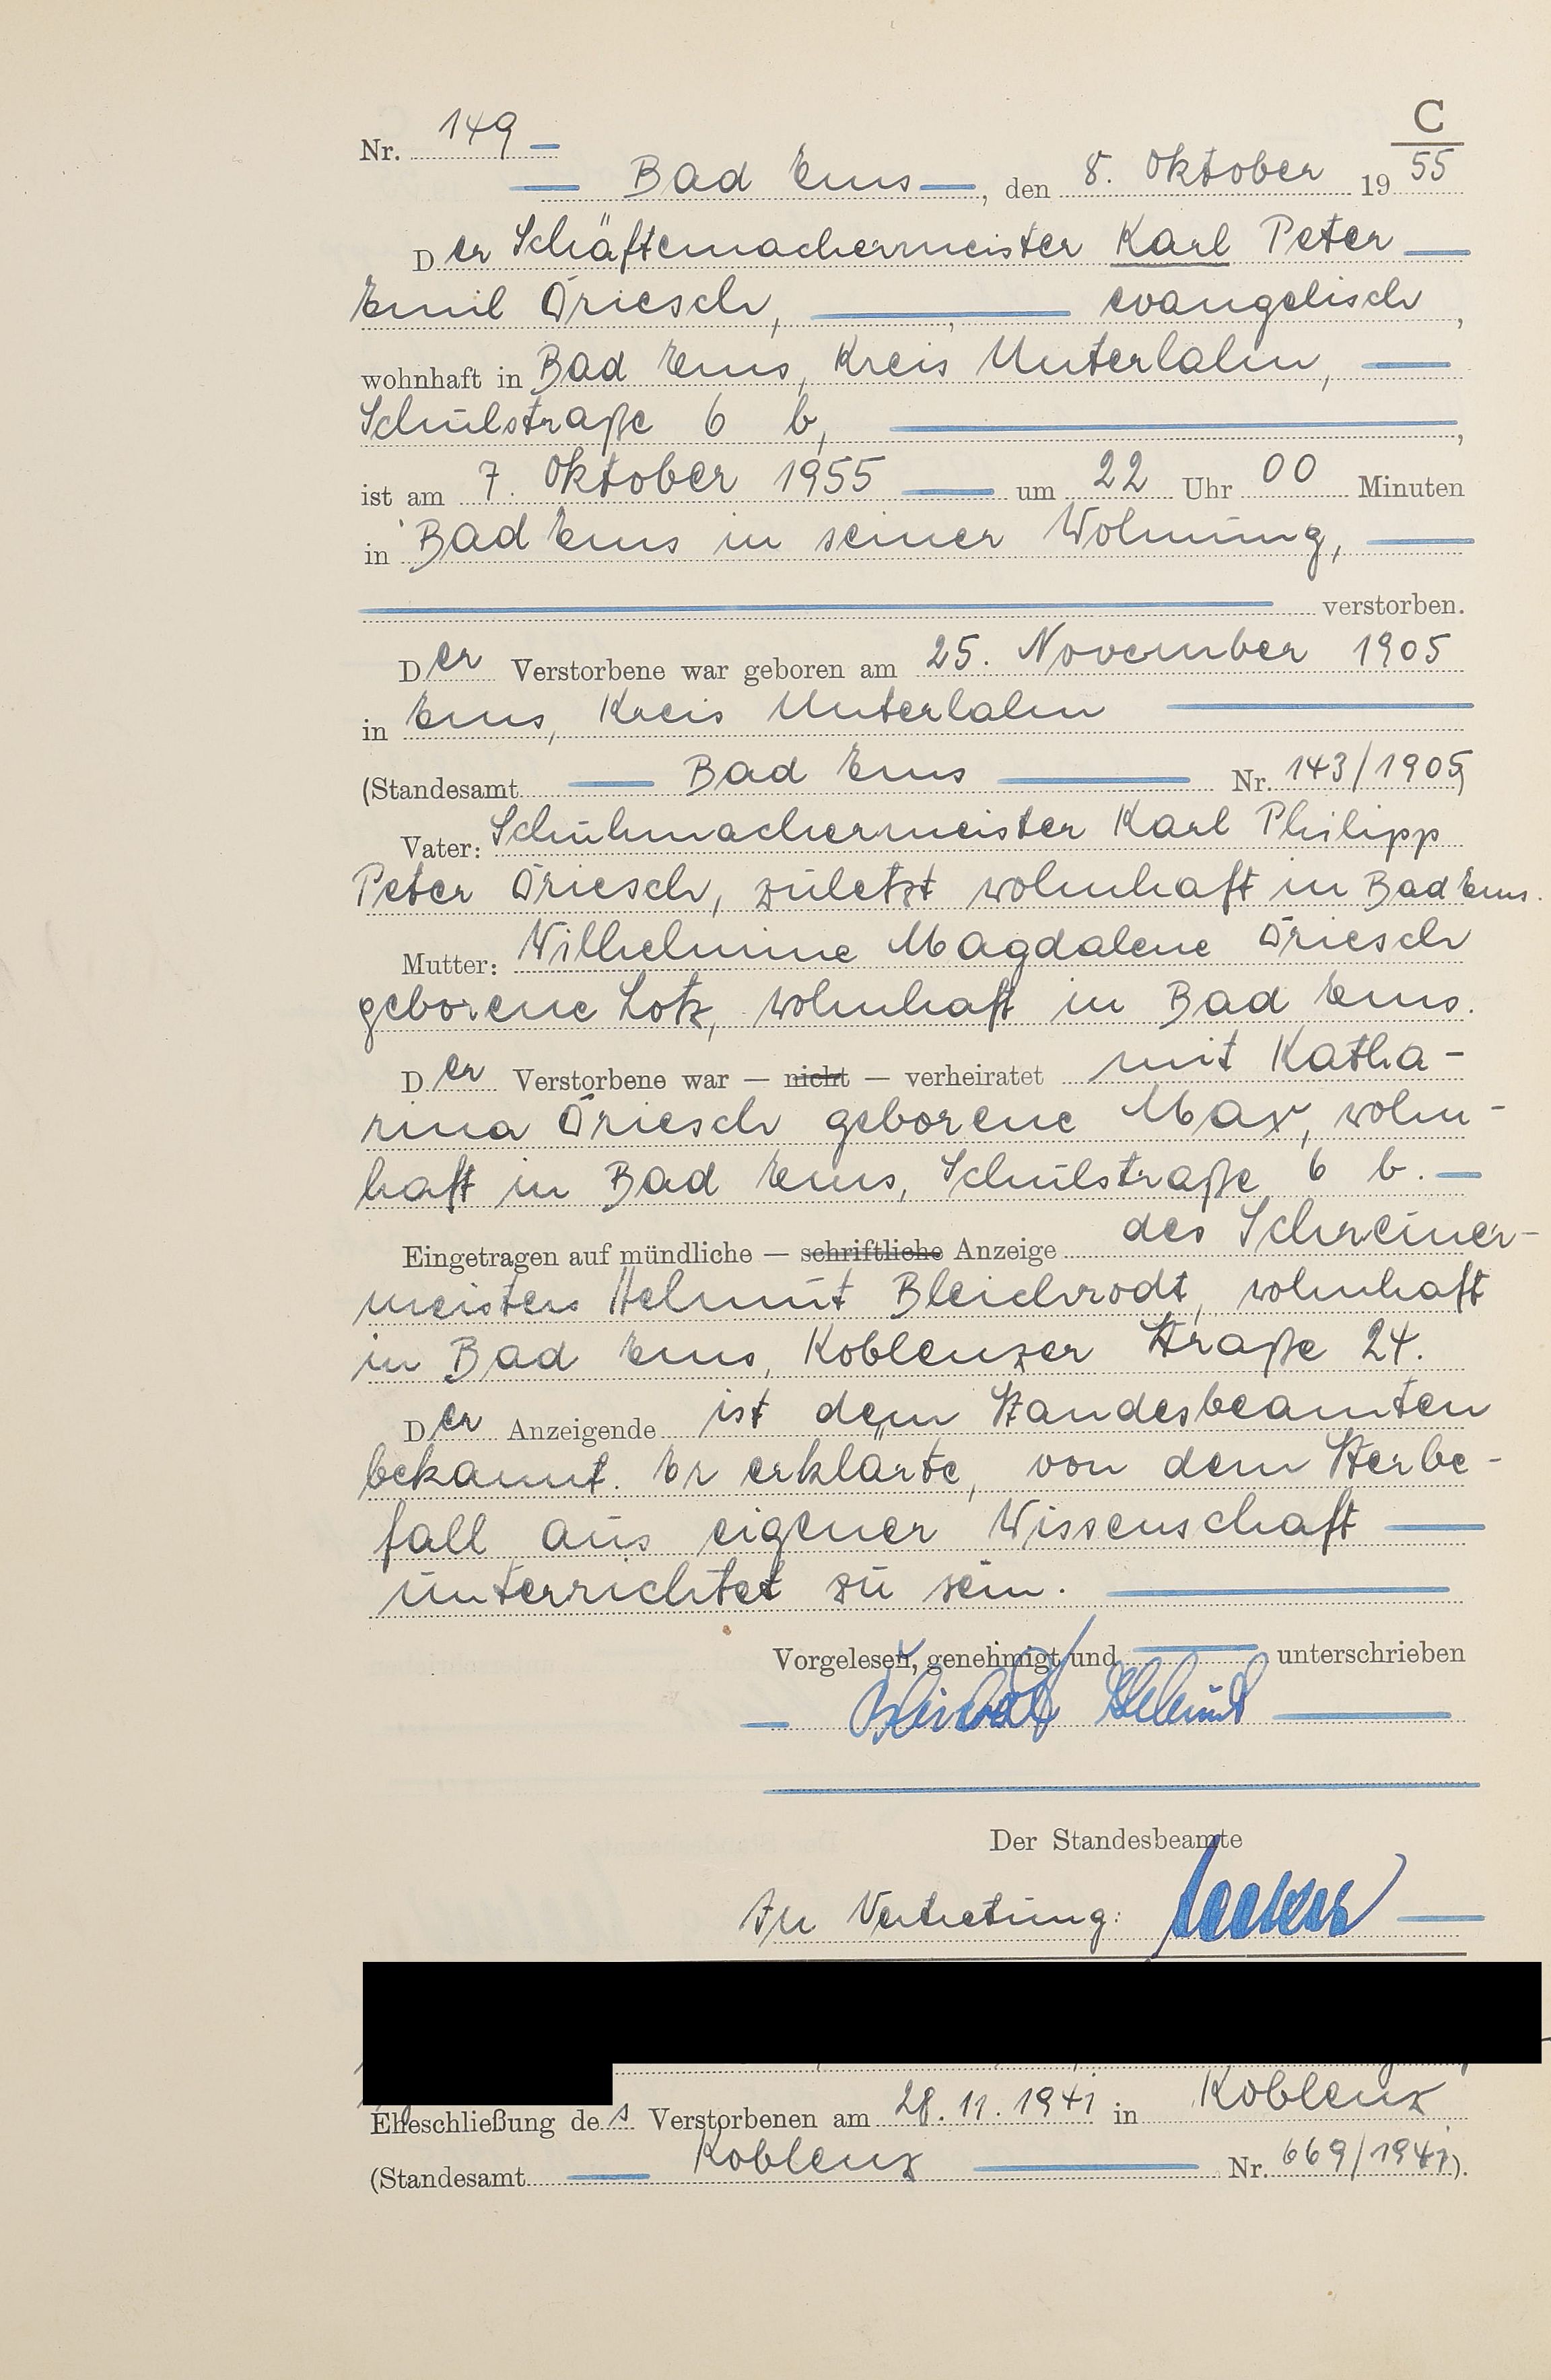 C
Nr. 149
Bad Ems, den 8. Oktober 1955
Der Schäftemachermeister Karl Peter
Emil Driesch, evangelisch,
wohnhaft in Bad Ems, Kreis Unterlahn,
Schulstraße 6 b,
ist am 7. Oktober 1955 um 22 Uhr 00 Minuten
in Bad Ems in seiner Wohnung,
verstorben.
Der Verstorbene war geboren am 25. November 1905
in Ems, Kreis Unterlahn
(Standesamt Bad Ems Nr. 143/1905)
Vater: Schuhmachermeister Karl Philipp
Peter Driesch, zuletzt wohnhaft in Bad Ems.
Mutter: Wilhelmine Magdalene Driesch
geborene Lotz, wohnhaft in Bad Ems.
Der Verstorbene war — nicht — verheiratet mit Katha-
rina Driesch geborene Max, wohn-
haft in Bad Ems, Schulstraße 6 b.
Eingetragen auf mündliche — schriftliche Anzeige des Schreiner-
meisters Helmut Bleichrodt, wohnhaft
in Bad Ems, Koblenzer Straße 24.
Der Anzeigende ist dem Standesbeamten
bekannt. Er erklärte, von dem Sterbe-
fall aus eigener Wissenschaft
unterrichtet zu sein.
Vorgelesen, genehmigt und unterschrieben
Bleichrodt Helmut
Der Standesbeamte
In Vertretung:
Eheschließung des Verstorbenen am 28.11.1941 in Koblenz
(Standesamt Koblenz Nr. 669/1941).